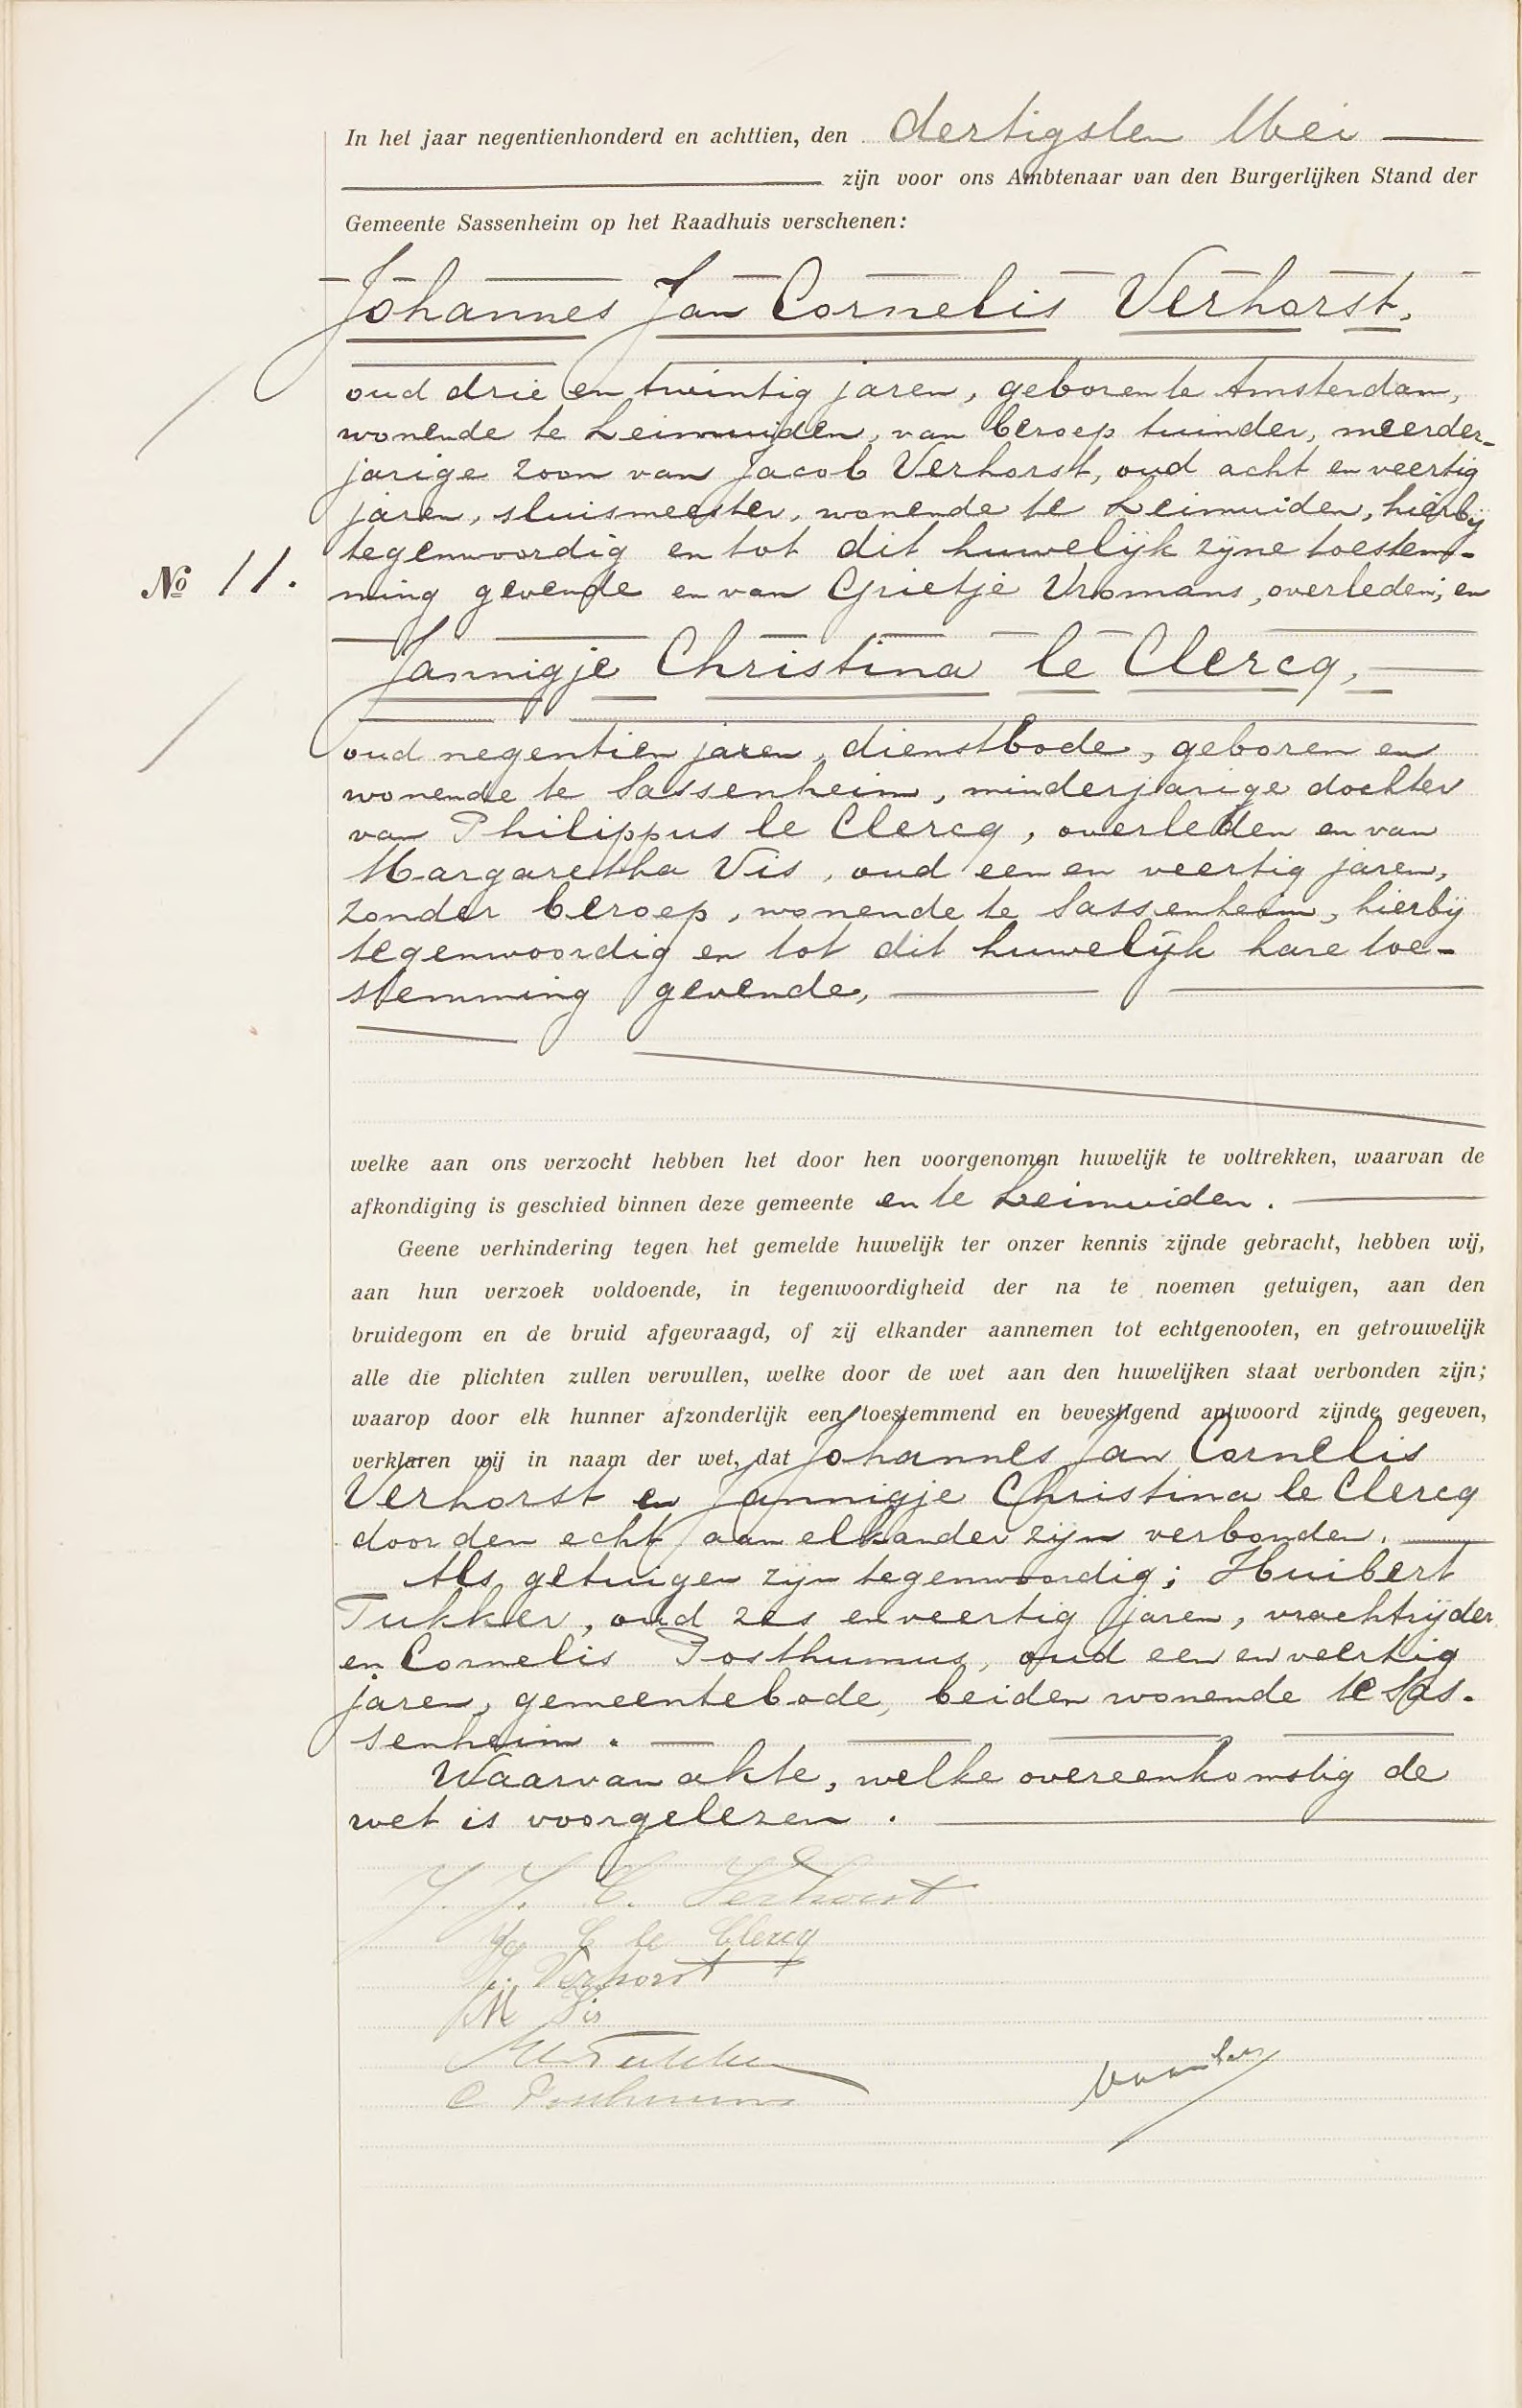 In het jaar negentienhonderd en achttien, den dertigsten Mei
zijn voor ons Ambtenaar van den Burgerlijken Stand der
Gemeente Sassenheim op het Raadhuis verschenen:
Johannes Jan Cornelis Verhorst,
oud drie en twintig jaren, geboren te Amsterdam,
wonende te Leimuijden, van beroep tuinder, meerder-
jarige zoon van Jacob Verhorst, oud acht en veertig
jaren, sluismeester, wonende te Leimuiden, hierbij
tegenwoordig en tot dit huwelijk zijne toestem-
No 11.
ming gevende en van Grietje Vromans, overleden; en
Jannigje Christina le Clercq,
oud negentien jaren, dienstbode, geboren en
wonende te Sassenheim, minderjarige dochter
van Philippus le Clercq, overleden en van
Margaretha Vis, oud een en veertig jaren,
zonder beroep, wonende te Sassenheim, hierbij
tegenwoordig en tot dit huwelijk hare toe-
stemming gevende,
welke aan ons verzocht hebben het door hen voorgenomen huwelijk te voltrekken, waarvan de
afkondiging is geschied binnen deze gemeente en te Leimuiden.
Geene verhindering tegen het gemelde huwelijk ter onzer kennis zijnde gebracht, hebben wij,
aan hun verzoek voldoende, in tegenwoordigheid der na te noemen getuigen, aan den
bruidegom en de bruid afgevraagd, of zij elkander aannemen tot echtgenooten, en getrouwelijk
alle die plichten zullen vervullen, welke door de wet aan den huwelijken staat verbonden zijn;
waarop door elk hunner afzonderlijk een toestemmend en bevestigend antwoord zijnde gegeven,
verklaren wij in naam der wet, dat Johannes Jan Cornelis
Verhorst en Jannigje Christina le Clercq
door den echt aan elkander zijn verbonden.
Als getuigen zijn tegenwoordig; Huibert
Tukker, oud zes en veertig jaren, vrachtrijder
en Cornelis Posthumus, oud een en veertig
jaren, gemeentebode, beiden wonende te Sas-
senheim.
Waarvan akte, welke overeenkomstig de
wet is voorgelezen.
J. J. C. Verhorst
C le Clercq
J. Verhorst
M Vis
H Tukker
C Posthumus